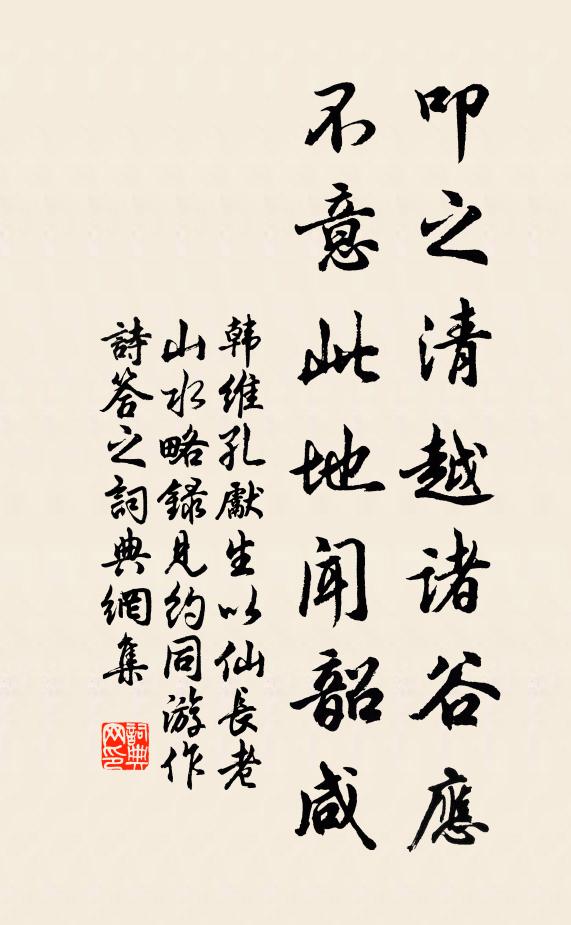 叩之清越诸谷應
不意此地闻韶咸
韩维孔獻生以仙長老
山水略録見約同游作
詩答之詞典網集
詞典网印